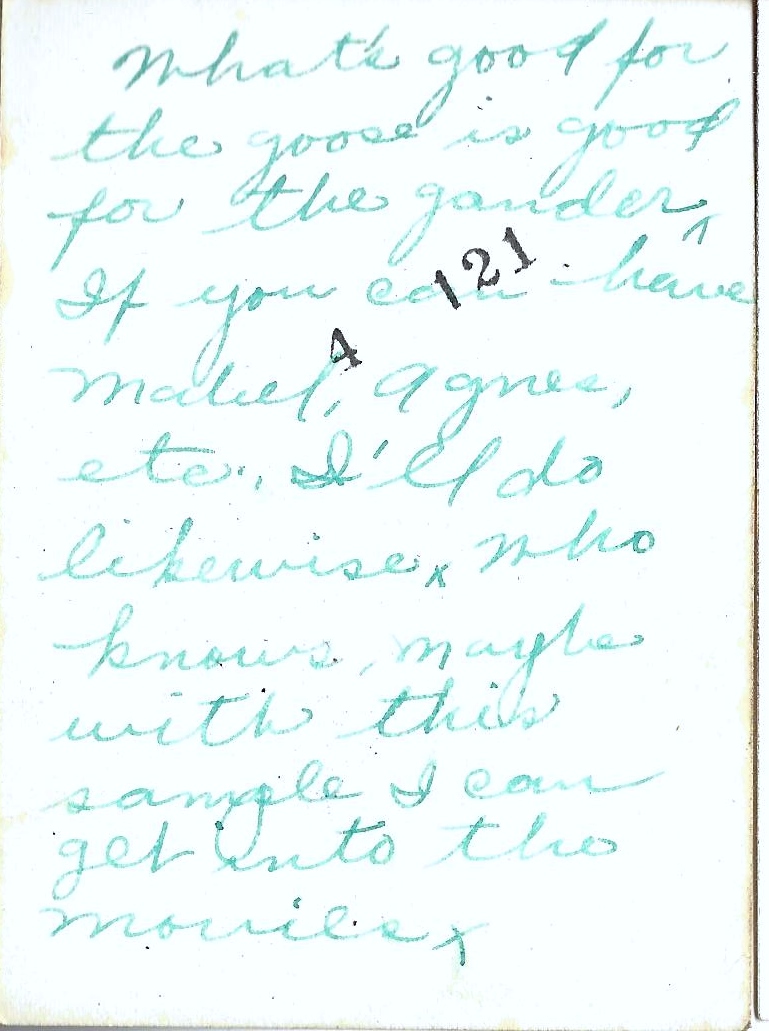 What's good for
the goose is good
for the gander.
If you can have
121
4
Mabel, Agnes,
etc., I'll do
likewise. Who
knows, maybe
with this
sample I can
get into the
movies.